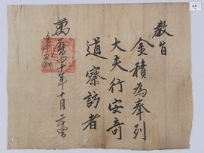 敎旨
金積為奉列
大夫行安奇
道察訪者
萬曆四十年十月